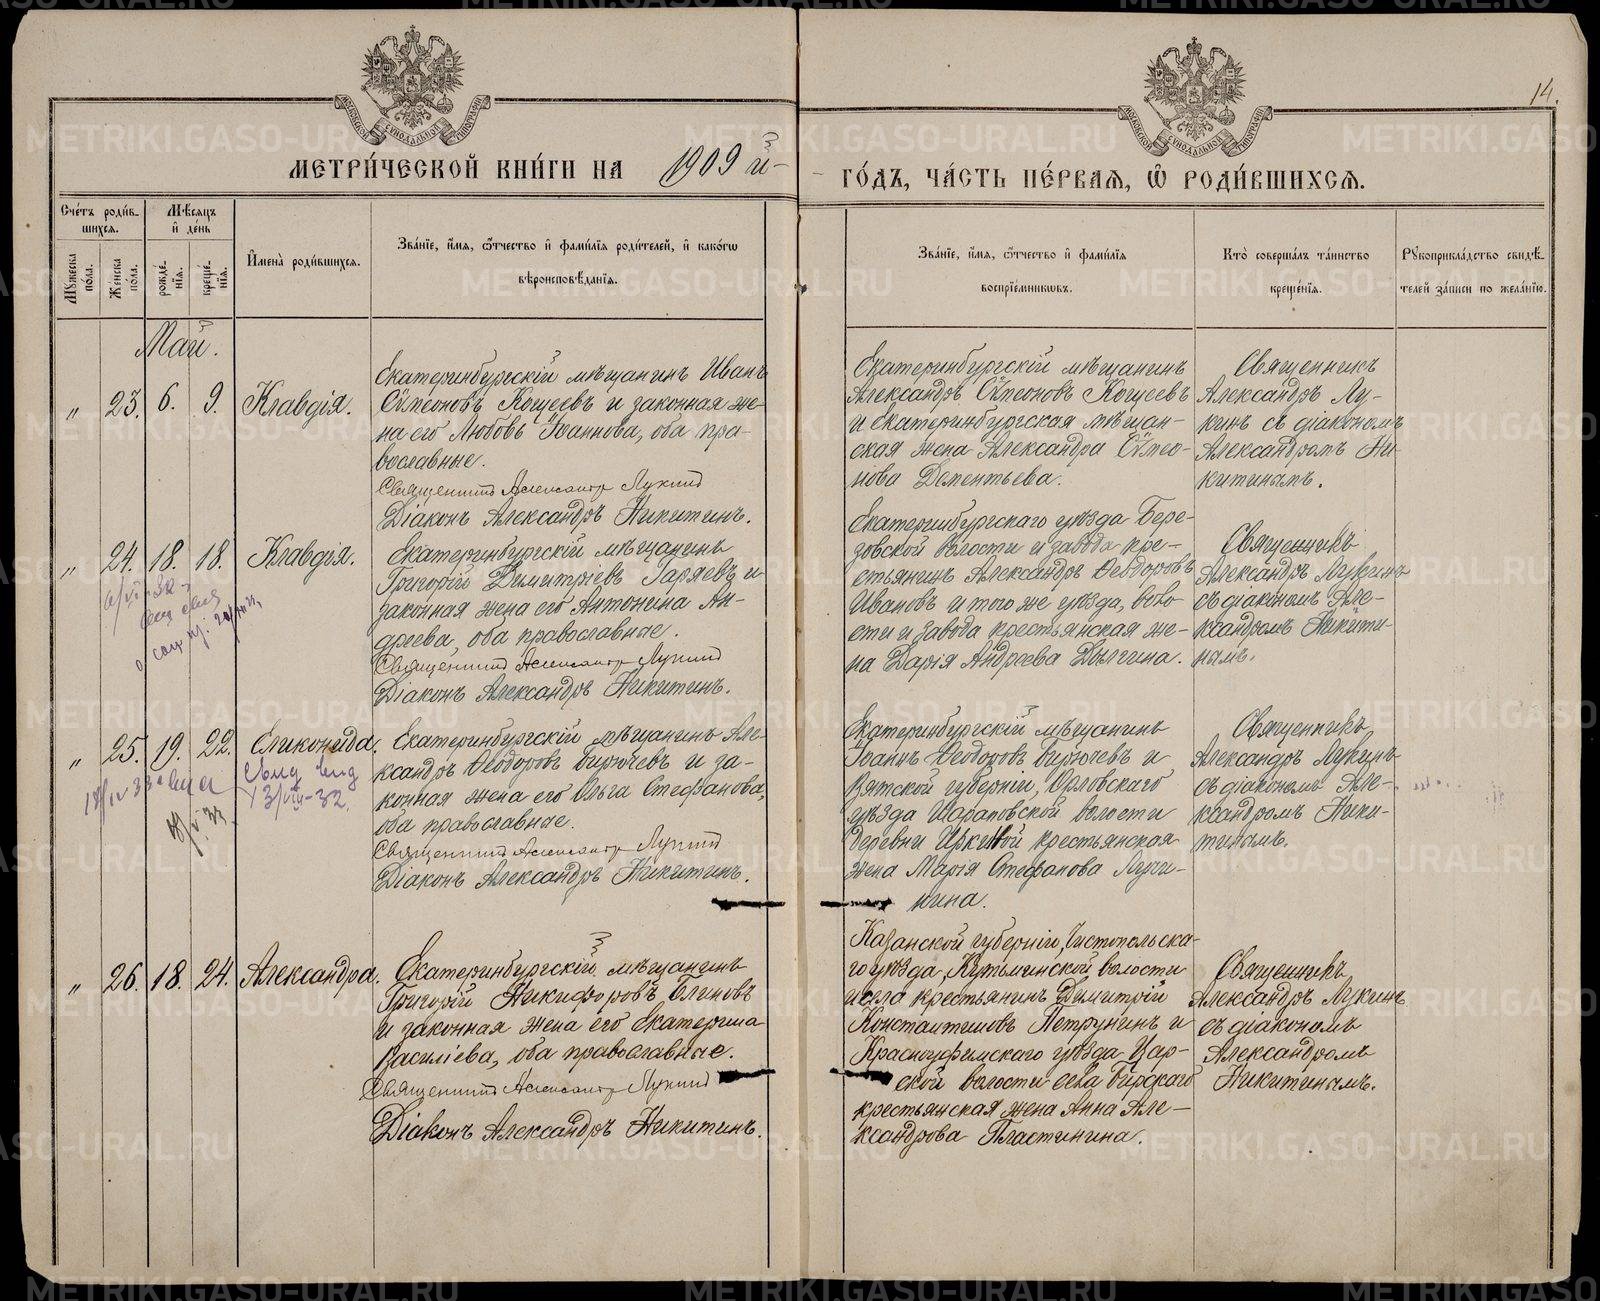 14.
МЕТРИ́ЧЕСКОЙ КНИ́ГИ НА 1909 й
ГО́ДЪ, ЧА́СТЬ ПЕ́РВАЯ, Ѽ РОДИ́ВШИХСЯ.
МОСКОВСКОЙ СѴНОДАЛЬНОЙ ТИПОГРАФІИ
МОСКОВСКОЙ СѴНОДАЛЬНОЙ ТИПОГРАФІИ
Сче́тъ роди́в-
шихся.
Мꙋжеска по́ла.
Же́нска по́ла.
Мѣ́сяцъ
и҆ де́нь
рожде́-
нїѧ.
креще́-
нїѧ.
И҆мена̀ роди́вшихся.
Зва́нїе, и҆́мѧ, ѻ҆́тчество и҆ фамѝлїѧ роди́телей, и҆ како́гѡ
вѣроисповѣ́данїѧ.
Зва́нїе, и҆́мѧ, ѻ҆́тчество и҆ фамѝлїѧ
воспрїе́мникѡвъ.
Кто̀ соверша́лъ та́инство
креще́нїѧ.
Рꙋкоприкла́дство свидѣ́-
телей за́писи по жела́нїю.
Май.
„ 23. 6. 9. Клавдія.
Екатеринбургскій мѣщанинъ Иванъ
Сѵмеоновъ Кощеевъ и законная же-
на его Любовь Іоаннова, оба пра-
вославные.
Священникъ Александр Лукинъ
Діаконъ Александръ Никитинъ.
Екатеринбургскій мѣщанинъ
Александръ Сѵмеоновъ Кощеевъ
и екатеринбургская мѣщан-
ская жена Александра Сѵмео-
нова Дементьева.
Священникъ
Александръ Лу-
кинъ съ діакономъ
Александромъ Ни-
китинымъ.
„ 24. 18. 18. Клавдія.
Екатеринбургскій мѣщанинъ
Григорій Димитріевъ Гаряевъ и
законная жена его Антонина Ан-
дреева, оба православные.
Священникъ Александр Лукинъ
Діаконъ Александръ Никитинъ.
Екатеринбургскаго уѣзда Бере-
зовской волости и завода кре-
стьянинъ Александръ Ѳеодоровъ
Ивановъ и того же уѣзда, воло-
сти и завода крестьянская же-
на Дарія Андреева Дылгина.
Священникъ
Александръ Лукинъ
съ діакономъ Але-
ксандромъ Никити-
нымъ.
„ 25. 19. 22. Еликонида.
Екатеринбургскій мѣщанинъ Але-
ксандръ Ѳеодоровъ Бирючевъ и за-
конная жена его Ольга Стефанова,
оба православные.
Священникъ Александр Лукинъ
Діаконъ Александръ Никитинъ.
Екатеринбургскій мѣщанинъ
Іоаннъ Ѳеодоровъ Бирючевъ и
Вятской губерніи, Орловскаго
уѣзда Шараповской волости
деревни Иркиной крестьянская
жена Марія Стефанова Лучи-
нина.
Священникъ
Александръ Лукинъ
съ діакономъ Але-
ксандромъ Ники-
тинымъ.
„ 26. 18. 24. Александра.
Екатеринбургскій мѣщанинъ
Григорій Никифоровъ Блиновъ
и законная жена его Екатерина
Василіева, оба православные.
Священникъ Александр Лукинъ
Діаконъ Александръ Никитинъ.
Казанской губерніи, Чистопольска-
го уѣзда, Кутьминской волости
и села крестьянинъ Димитрій
Константиновъ Петрунинъ и
Красноуфимскаго уѣзда Цар-
ской волости села Бирскаго
крестьянская жена Анна Але-
ксандрова Пластинина.
Священникъ
Александръ Лукинъ
съ діакономъ
Александромъ
Никитинымъ.
METRIKI.GASO-URAL.RU